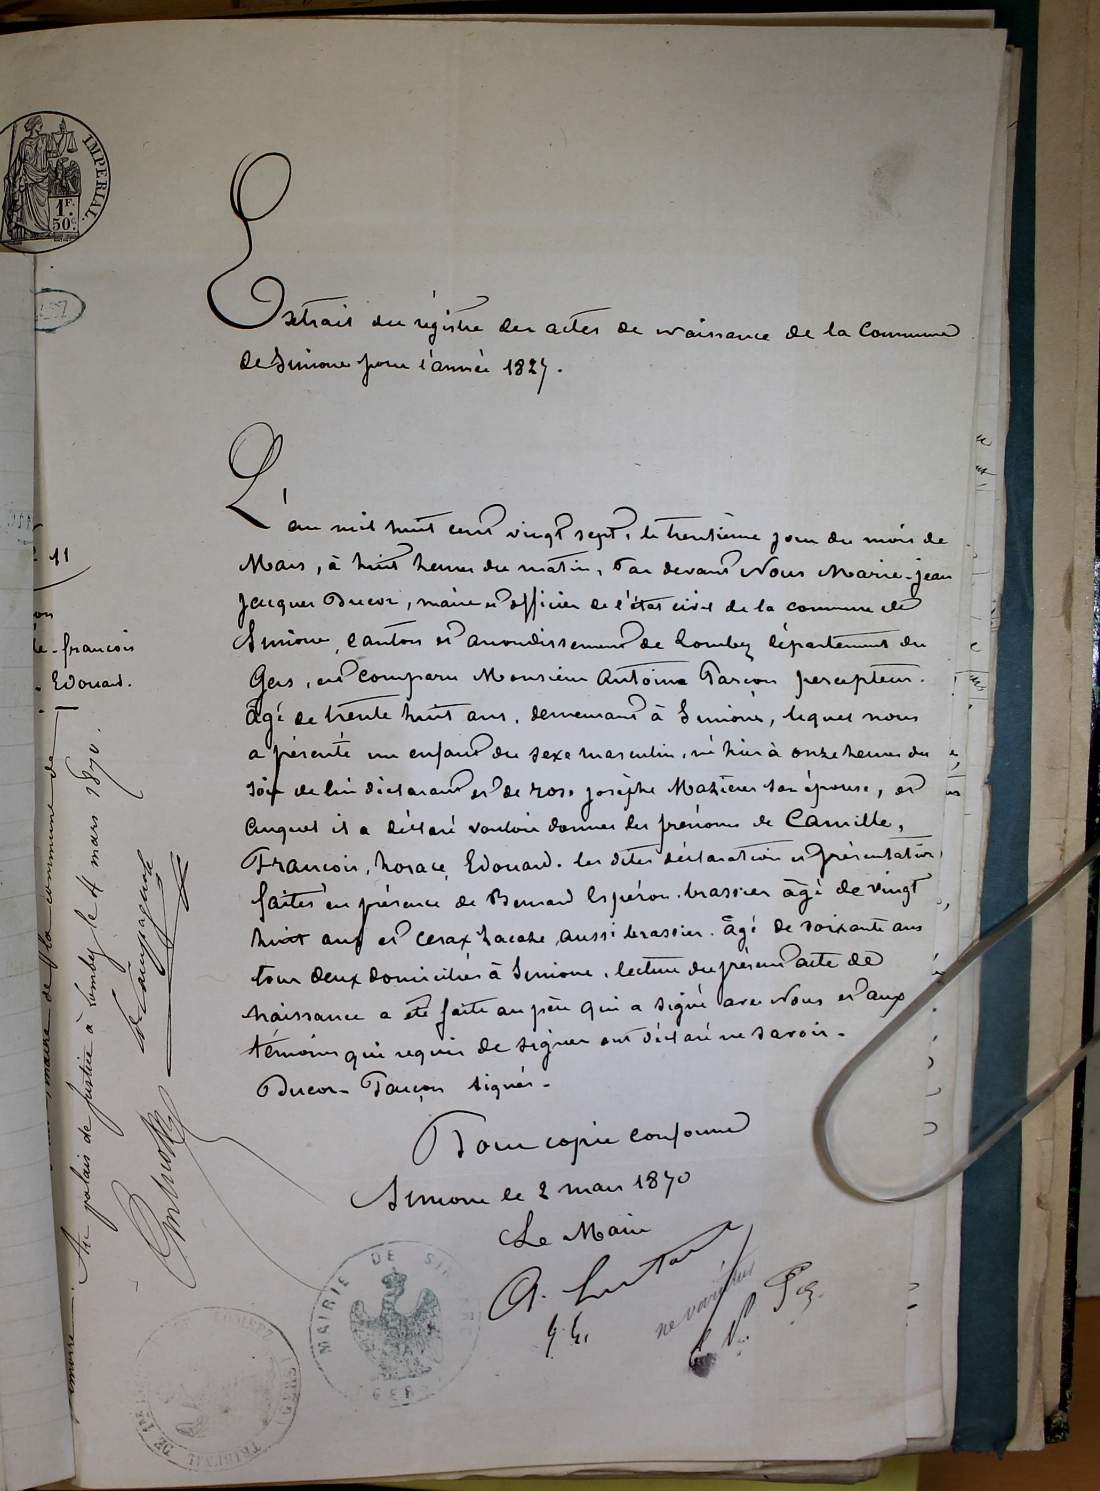 IMPERIAL.
1F.
50c.
Extrait du régistre des actes de naissance de la Commune
de Simorre pour l'année 1827.
L'an mil huit cent vingt sept, le trentième jour du mois de
Mars, à huit heures du matin, Par devant Nous Marie-jean
Jacques Ducor, maire et officier de l'état civil de la commune de
Simorre, canton et arrondissement de Lombez département du
Gers, est comparu Monsieur Antoine Parçon percepteur.
âgé de trente huit ans, demeurant à Simorre, lequel nous
a présenté un enfant du sexe masculin, né hier à onze heures du
soir de lui déclarant et de rose josèphe Mazières son épouse, et
auquel il a déclaré vouloir donner les prénoms de Camille,
François, horace, Edouard. les dites déclaration et présentation
faites en présence de Bernard Espéron, brassier âgé de vingt
huit ans et Lacaze, aussi brassier. âgé de soixante ans
tous deux domiciliés à Simorre, lecture du présent acte de
naissance a été faite au père qui a signé avec Nous et aux
témoins qui requis de signer ont déclaré ne savoir.
Ducor - Parçon signés -
Pour copie conforme
Simorre le 2 mars 1870
Le Maire
ne varietur
MAIRIE DE SIMORRE
GERS
TRIBUNAL DE
11
françois
Edouard.
maire de la commune de
Simorre.
Au palais de justice à Lombez le 4 mars 1870.